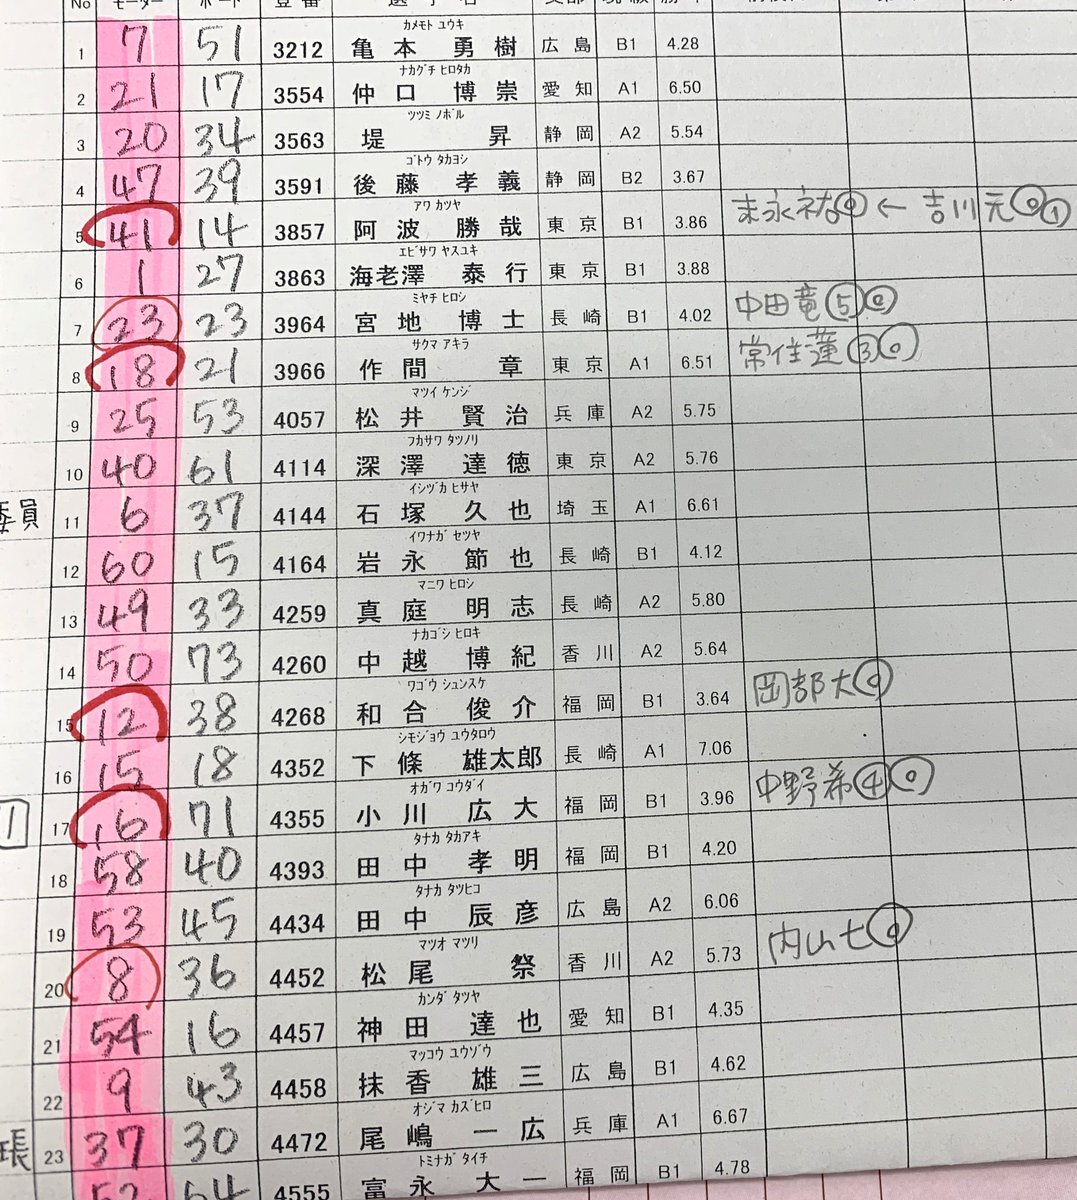 No モーター ボート 登番 選手名 支部 現級 勝率
カメモト ユウキ
1 7 51 3212 亀本 勇樹 広島 B1 4.28
ナカグチ ヒロタカ
2 21 17 3554 仲口 博崇 愛知 A1 6.50
ツツミ ノボル
3 20 34 3563 堤 昇 静岡 A2 5.54
ゴトウ タカヨシ
4 47 39 3591 後藤 孝義 静岡 B2 3.67
アワ カツヤ
5 41 14 3857 阿波 勝哉 東京 B1 3.86 末永祐◎ ← 吉川元◎①
エビサワ ヤスユキ
6 1 27 3863 海老澤 泰行 東京 B1 3.88
ミヤチ ヒロシ
7 23 23 3964 宮地 博士 長崎 B1 4.02 中田竜⑤◎
サクマ アキラ
8 18 21 3966 作間 章 東京 A1 6.51 常住蓮③◎
マツイ ケンジ
9 25 53 4057 松井 賢治 兵庫 A2 5.75
フカサワ タツノリ
10 40 61 4114 深澤 達徳 東京 A2 5.76
イシヅカ ヒサヤ
委員 11 6 37 4144 石塚 久也 埼玉 A1 6.61
イワナガ セツヤ
12 60 15 4164 岩永 節也 長崎 B1 4.12
マニワ ヒロシ
13 49 33 4259 真庭 明志 長崎 A2 5.80
ナカゴシ ヒロキ
14 50 73 4260 中越 博紀 香川 A2 5.64
ワゴウ シュンスケ
15 12 38 4268 和合 俊介 福岡 B1 3.64 岡部大◎
シモジョウ ユウタロウ
16 15 18 4352 下條 雄太郎 長崎 A1 7.06
オガワ コウダイ
1 17 16 71 4355 小川 広大 福岡 B1 3.96 中野希④◎
タナカ タカアキ
18 58 40 4393 田中 孝明 福岡 B1 4.20
タナカ タツヒコ
19 53 45 4434 田中 辰彦 広島 A2 6.06
マツオ マツリ
20 8 36 4452 松尾 祭 香川 A2 5.73 内山七◎
カンダ タツヤ
21 54 16 4457 神田 達也 愛知 B1 4.35
マッコウ ユウゾウ
22 9 43 4458 抹香 雄三 広島 B1 4.62
オジマ カズヒロ
長 23 37 30 4472 尾嶋 一広 兵庫 A1 6.67
トミナガ タイチ
52 64 4555 富永 大一 福岡 B1 4.78